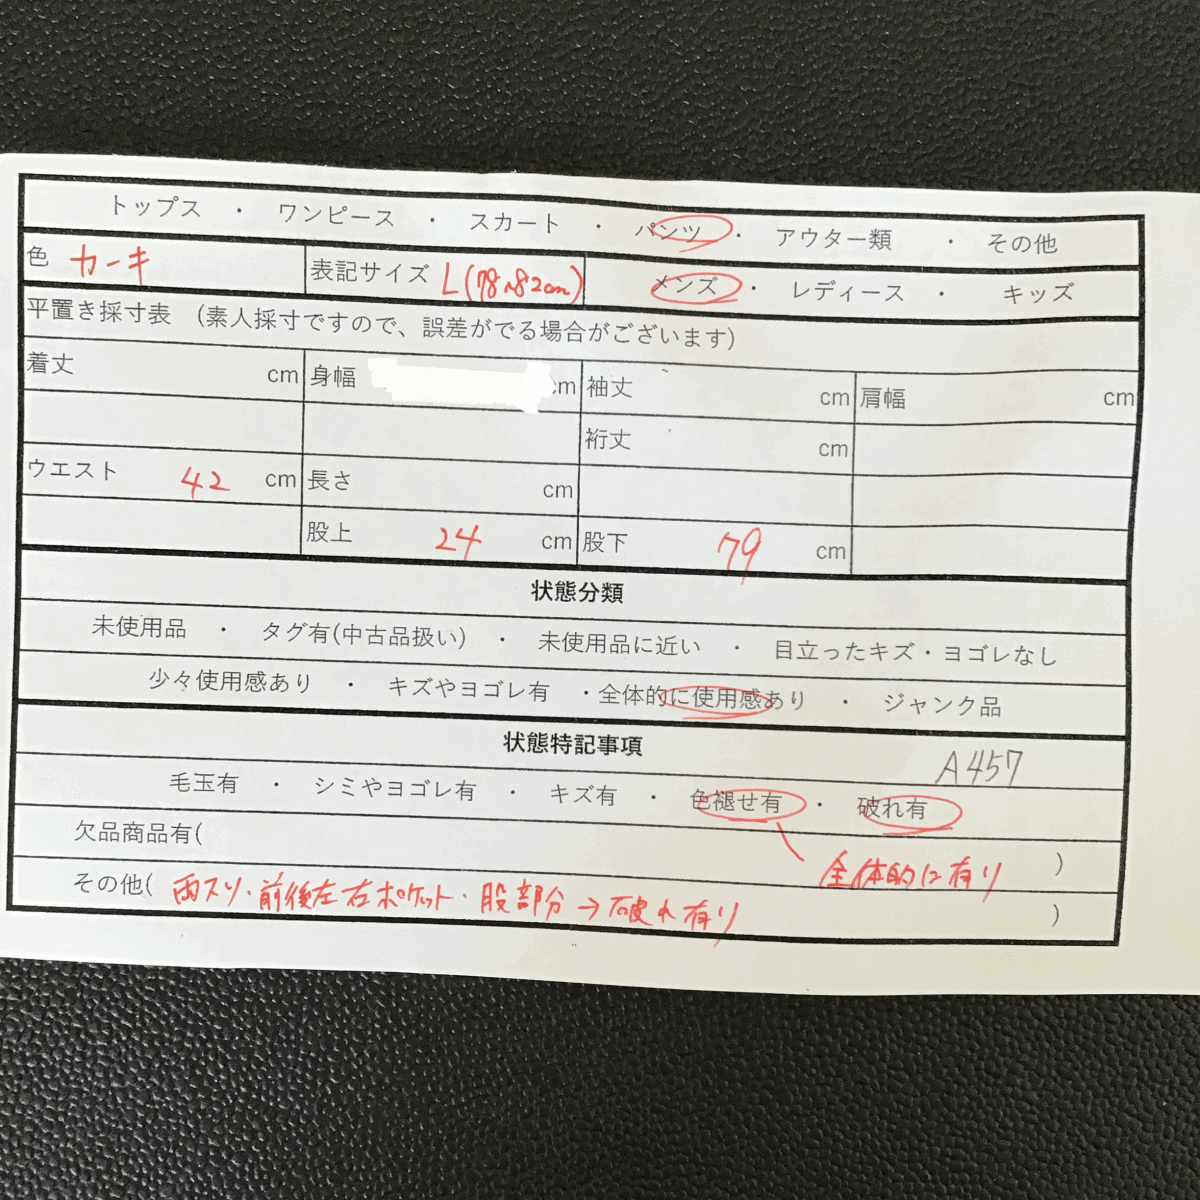 トップス ・ ワンピース ・ スカート ・ パンツ ・ アウター類 ・ その他
色 カーキ 表記サイズ L(78~82cm) メンズ ・ レディース ・ キッズ
平置き採寸表 (素人採寸ですので、誤差がでる場合がございます)
着丈 cm 身幅 cm 袖丈 cm 肩幅 cm
裄丈 cm
ウエスト 42 cm 長さ cm
股上 24 cm 股下 79 cm
状態分類
未使用品 ・ タグ有(中古品扱い) ・ 未使用品に近い ・ 目立ったキズ・ヨゴレなし
少々使用感あり ・ キズやヨゴレ有 ・全体的に使用感あり ・ ジャンク品
状態特記事項
A457
毛玉有 ・ シミやヨゴレ有 ・ キズ有 ・ 色褪せ有 ・ 破れ有
欠品商品有( )
全体的に有り
その他( 両スソ・前後左右ポケット・股部分→破れ有り )